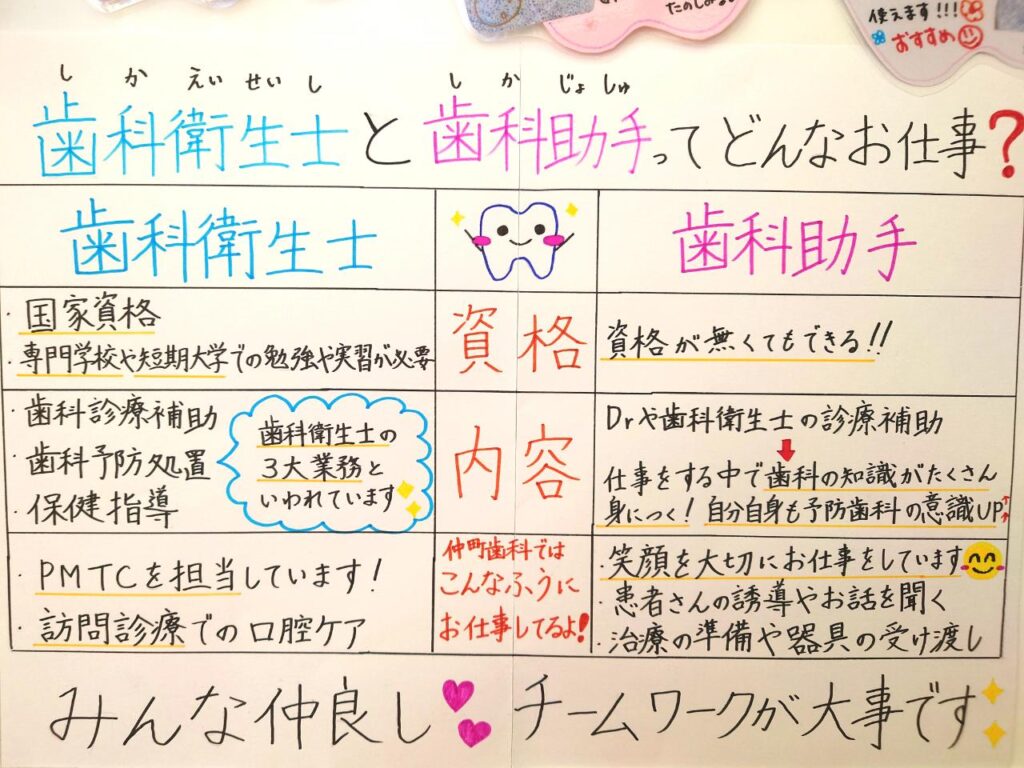 たのしみる
使えます!!!
おすすめ
しかえいせいし しかじょしゅ
歯科衛生士と歯科助手ってどんなお仕事?
歯科衛生士
歯科助手
・国家資格
・専門学校や短期大学での勉強や実習が必要
資格
資格が無くてもできる!!
・歯科診療補助
・歯科予防処置
・保健指導
歯科衛生士の
3大業務と
いわれています
内容
Drや歯科衛生士の診療補助
仕事をする中で歯科の知識がたくさん
身につく!自分自身も予防歯科の意識UP↑↑
・PMTCを担当しています!
・訪問診療での口腔ケア
仲町歯科では
こんなふうに
お仕事してるよ!
・笑顔を大切にお仕事をしています
・患者さんの誘導やお話を聞く
・治療の準備や器具の受け渡し
みんな仲良し チームワークが大事です